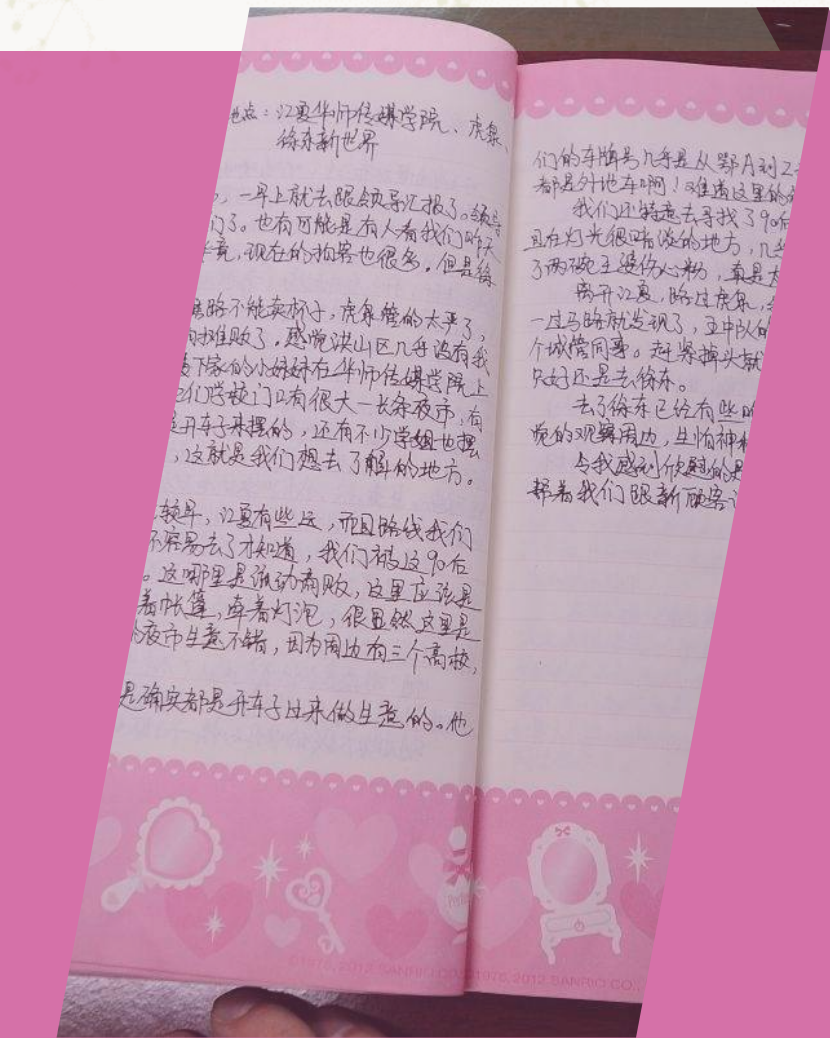 地点：江夏华师传媒学院、虎泉、
徐东新世界
，一早上就去跟领导汇报了。领导
们了。也有可能是有人看我们昨天
竟，现在的拍客也很多。但是徐
路不能卖杯子，虎泉管的太严了，
摊败了。感觉洪山区几乎没有我
下家的小妹妹在华师传媒学院上
们学校门口有很大一长条夜市，有
开车子来摆的，还有不少学姐也摆
，这就是我们想去了解的地方。
较早，江夏有些远，而且路线我们
不容易去了才知道，我们被这90后
。这哪里是流动商贩，这里应该是
着帐篷，牵着灯泡，很显然这里是
夜市生意不错，因为周边有三个高校，
是确实都是开车子过来做生意的。他
们的车牌号几乎是从鄂A到Z
都是外地车啊！难道这里的
我们还特意去寻找了90后
且在灯光很暗淡的地方，几
了两碗王婆伤心粉，真是太
离开江夏，路过虎泉，
一过马路就发现了，王中队的
个城管同哥。赶紧掉头就
只好还是去徐东。
去了徐东已经有些晚
觉的观察周边，生怕神
令我感到欣慰的是
帮着我们跟新顾客
©1976, 2012 SANRIO CO.,
©1976, 2012 SANRIO CO.,